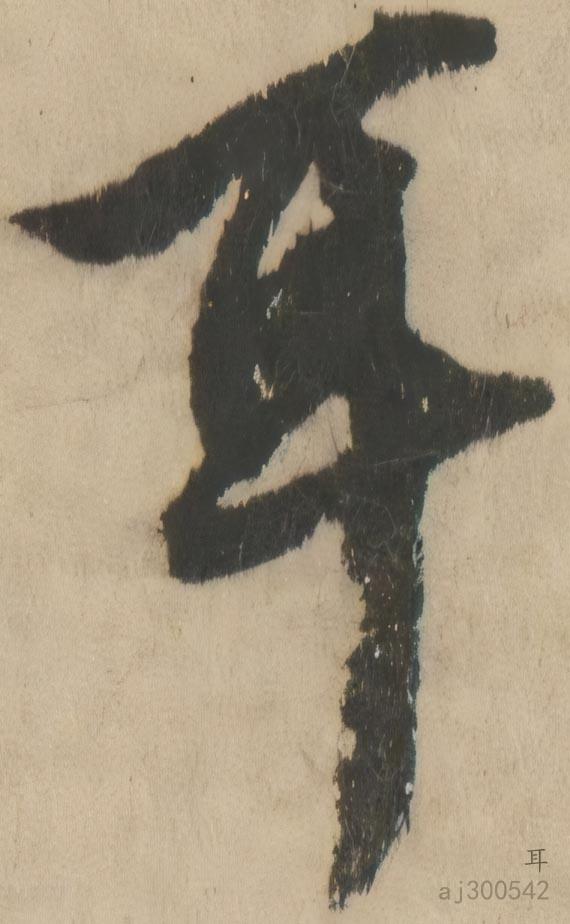 耳
耳
aj300542